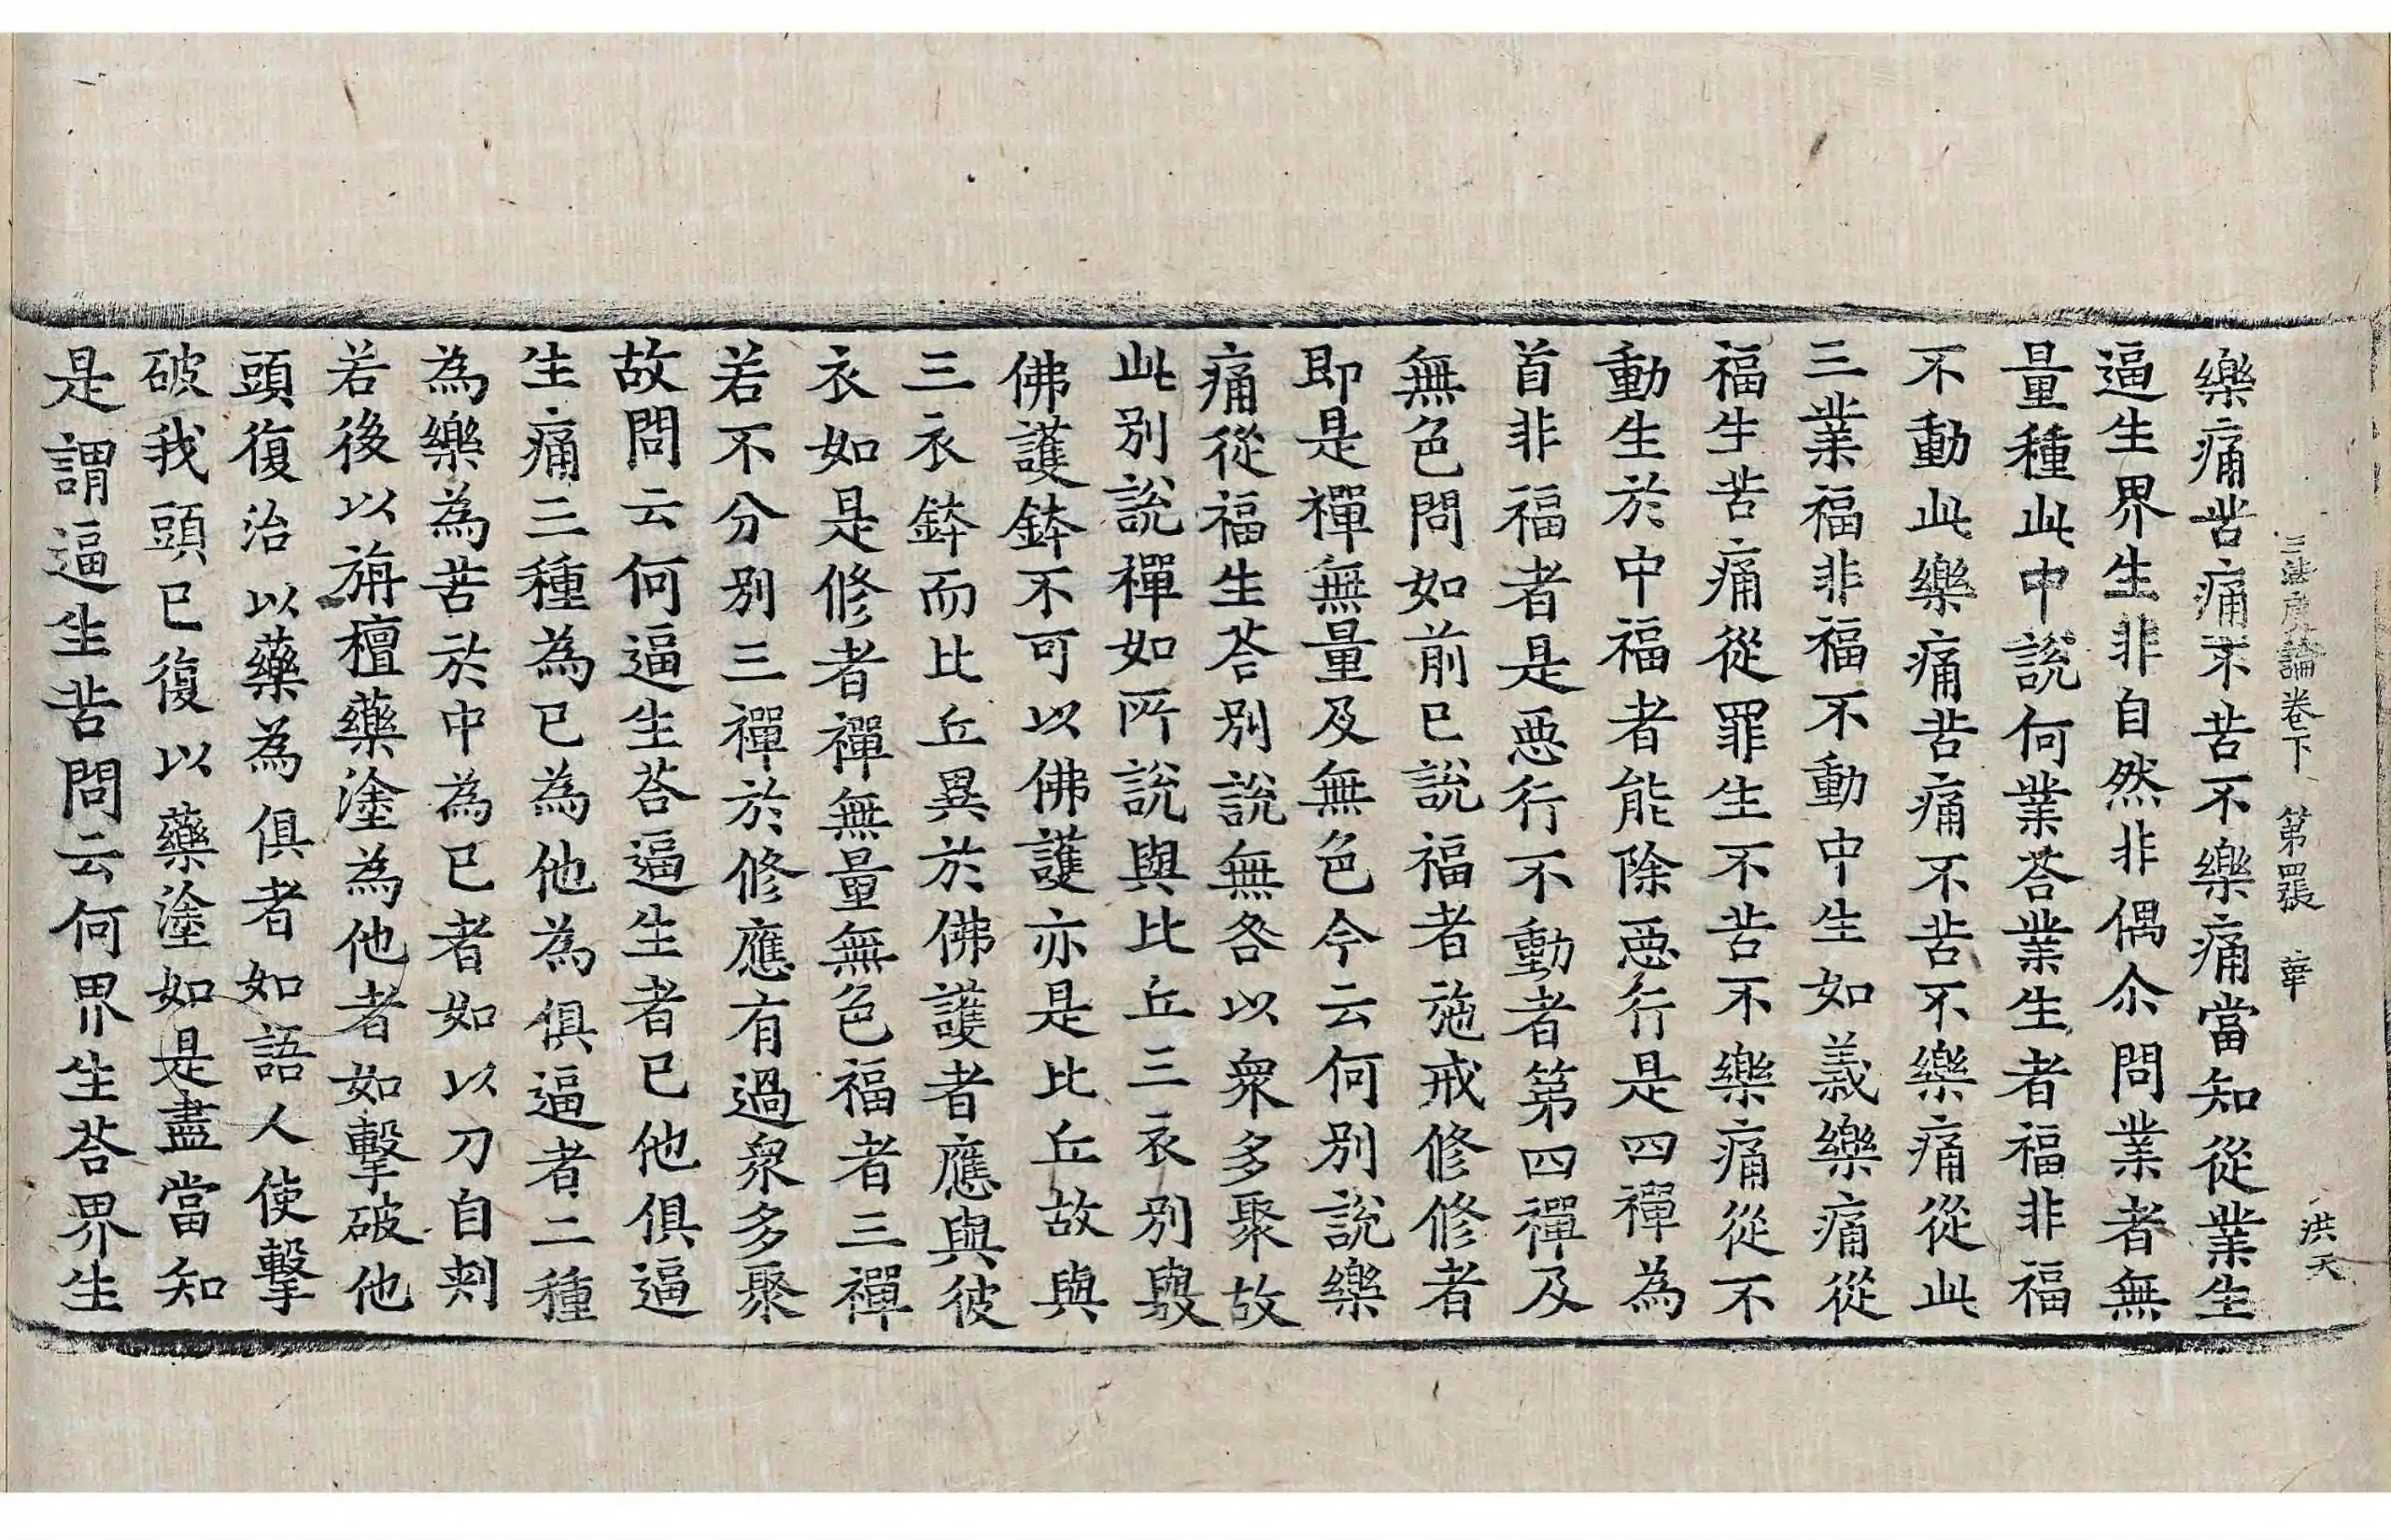 三法度論卷下 第四張 華 洪天
樂痛苦痛不苦不樂痛當知從業生
逼生界生非自然非偶尒問業者無
量種此中說何業荅業生者福非福
不動此樂痛苦痛不苦不樂痛從此
三業福非福不動中生如義樂痛從
福生苦痛從罪生不苦不樂痛從不
動生於中福者能除惡行是四禪為
首非福者是惡行不動者第四禪及
無色問如前已說福者施戒修修者
即是禪無量及無色今云何別說樂
痛從福生荅別說無咎以衆多聚故
此別說禪如所說與比丘三衣別與
佛護鉢不可以佛護亦是比丘故與
三衣鉢而比丘異於佛護者應與彼
衣如是修者禪無量無色福者三禪
若不分別三禪於修應有過衆多聚
故問云何逼生荅逼生者已他俱逼
生痛三種為已為他為俱逼者二種
為樂為苦於中為已者如以刀自刾
若後以旃檀藥塗為他者如擊破他
頭復治以藥為俱者如語人使擊
破我頭已復以藥塗如是盡當知
是謂逼生苦問云何界生荅界生